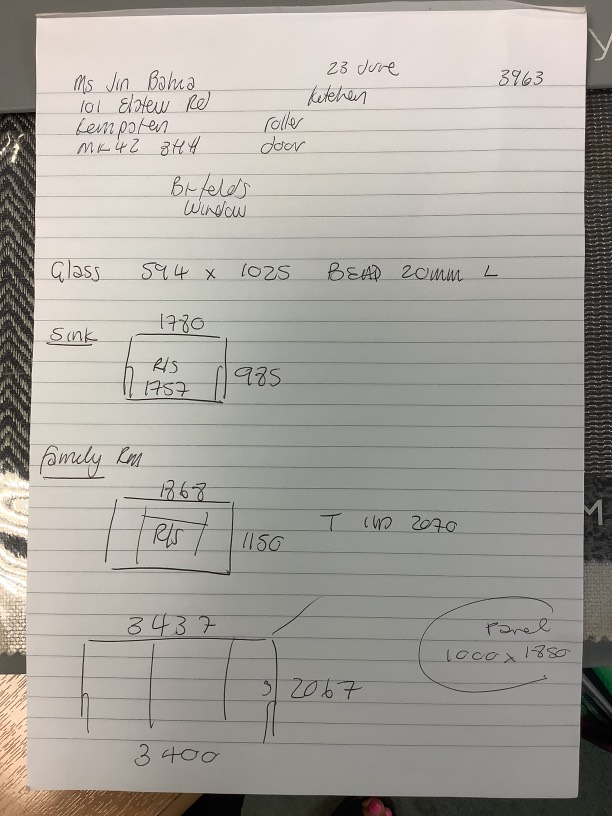 Ms Jin Bahra 23 June 3963
101 Elstow Rd Kitchen
Kempston roller
MK42 8HH door
Bifolds
Window
Glass 594 x 1025 BEAD 20mm L
Sink
1780
R/S
1757
985
Family Rm
1868
R/S
1150
T 2070
3437
Panel
1000 x 1850
2067
3400
Y
M